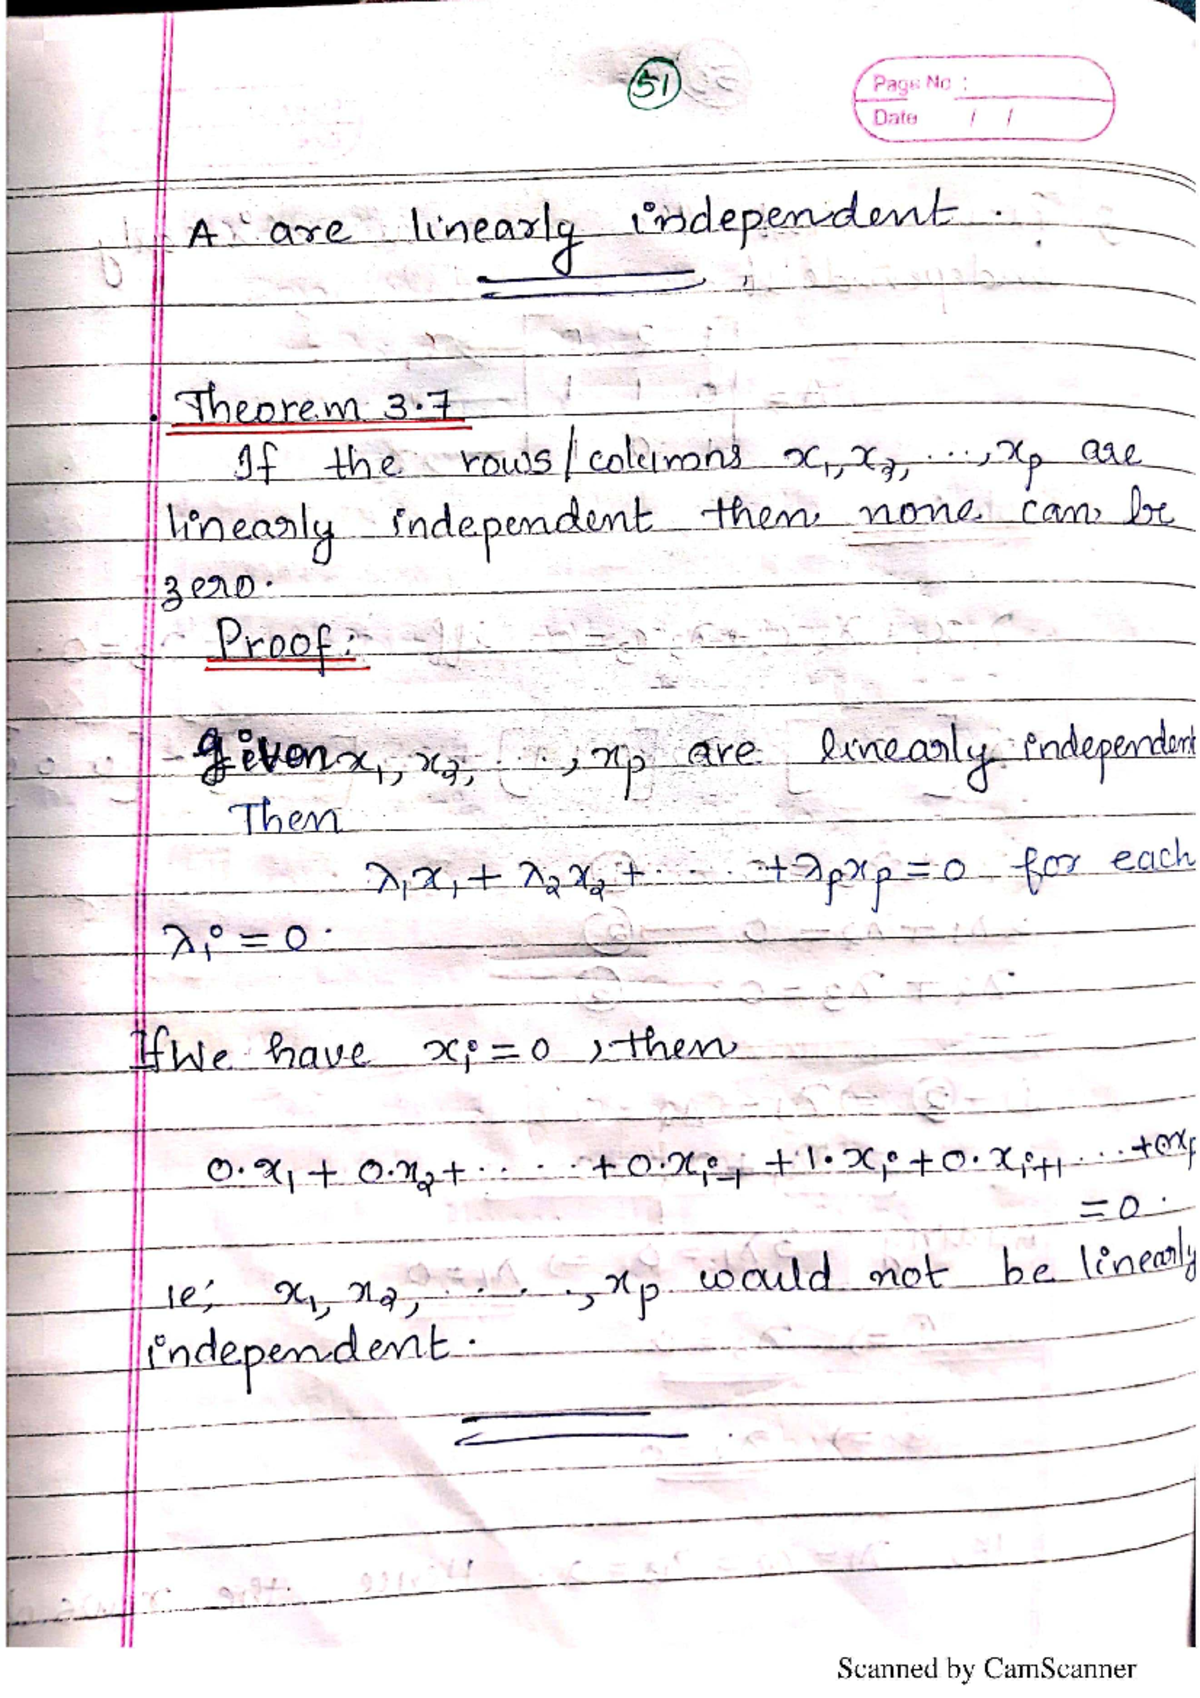 51
Page No :
Date / /
A are linearly independent.
Theorem 3.7
If the rows/columns x₁, x₂, ..., xₚ are
linearly independent then none can be
zero.
Proof:
Given x₁, x₂, ..., xₚ are linearly independent
Then
λ₁x₁ + λ₂x₂ + ..... + λₚxₚ = 0 for each
λᵢ = 0.
If We have xᵢ = 0, then
0·x₁ + 0·x₂ + ..... + 0·xᵢ₋₁ + 1·xᵢ + 0·xᵢ₊₁ ... + 0xₚ
= 0.
ie; x₁, x₂, ....., xₚ would not be linearly
independent.
Scanned by CamScanner